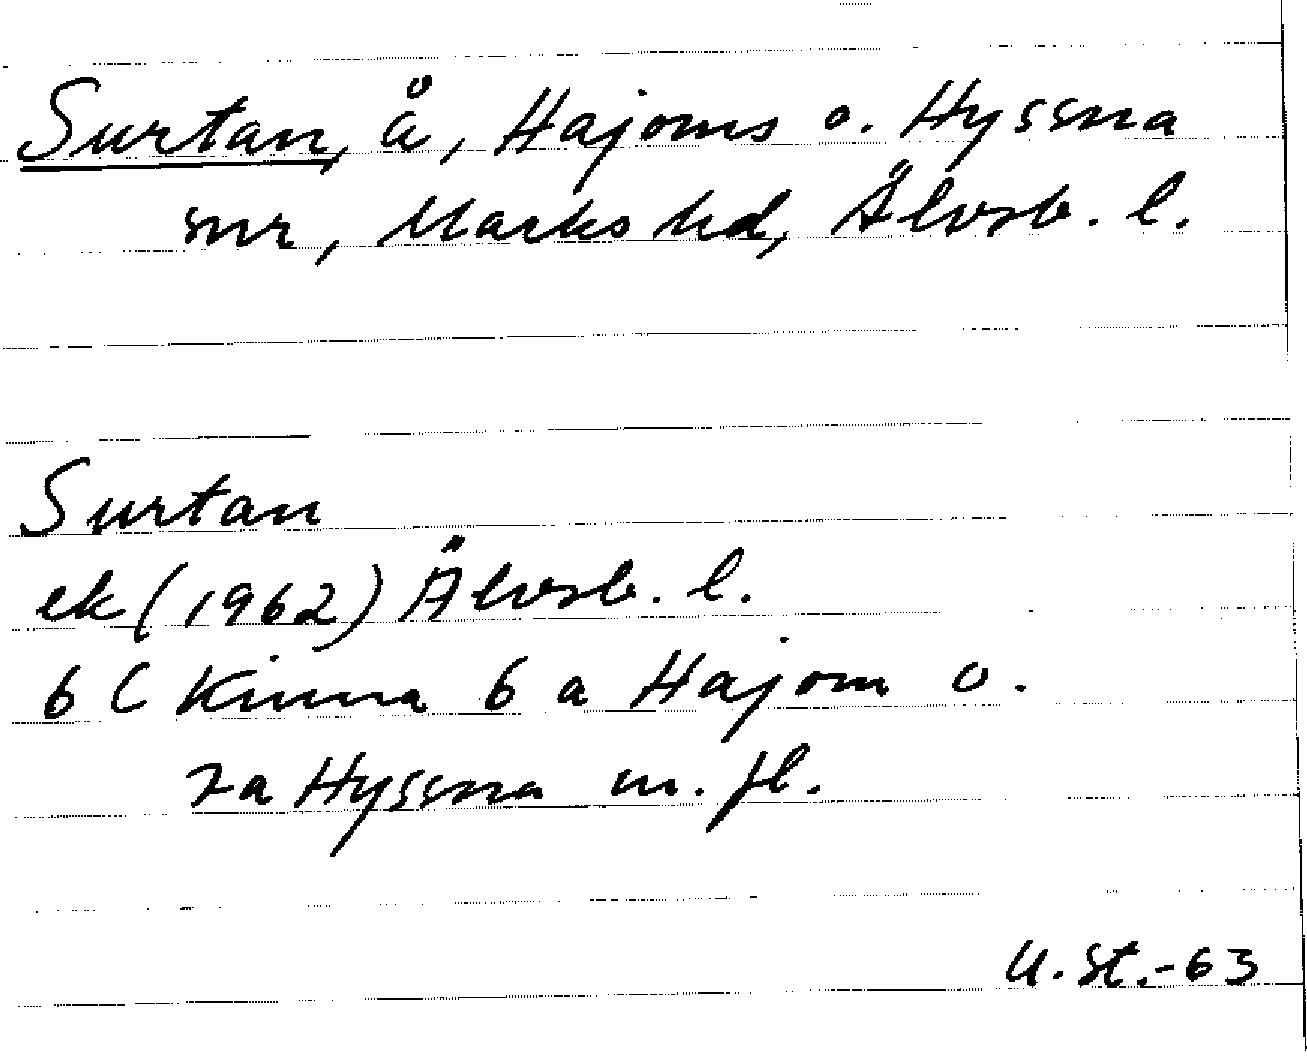 Surtan, å, Hajoms o. Hyssna
snr, Marks hd, Älvsb. l.
Surtan
ek (1962) Älvsb. l.
6 C Kinna 6 a Hajom o.
7a Hyssna m. fl.
U. St. -63